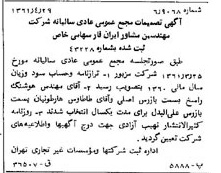 شماره ۶/۹۰۶۸ ۱۳۶۱/۴/۲۹
آگهی تصمیمات مجمع عمومی عادی سالیانه شرکت
مهندسین مشاور ایران فار سهامی خاص
ثبت شده بشماره ۴۳۲۲۸
طبق صورتجلسه مجمع عمومی عادی سالیانه مورخ
۱۳۶۱/۳/۲۵ شرکت مزبور ۱- ترازنامه وحساب سود وزیان
سال مالی ۱۳۶۰ بتصویب رسید ۲- آقای مهندس هوشنگ
راسخ بسمت بازرس اصلی وآقای طاطاوس هارطونیان بسمت
بازرس علی‌البدل برای مدت یکسال انتخاب شدند ۳- روزنامه
کثیرالانتشار نهیب آزادی جهت دوج آگهیها واطلاعیه‌های
شرکت تعیین گردید .
اداره ثبت شرکتها ومؤسسات غیر تجاری تهران
پ-۵۸۸۸ ق-۳۶۵۰۷